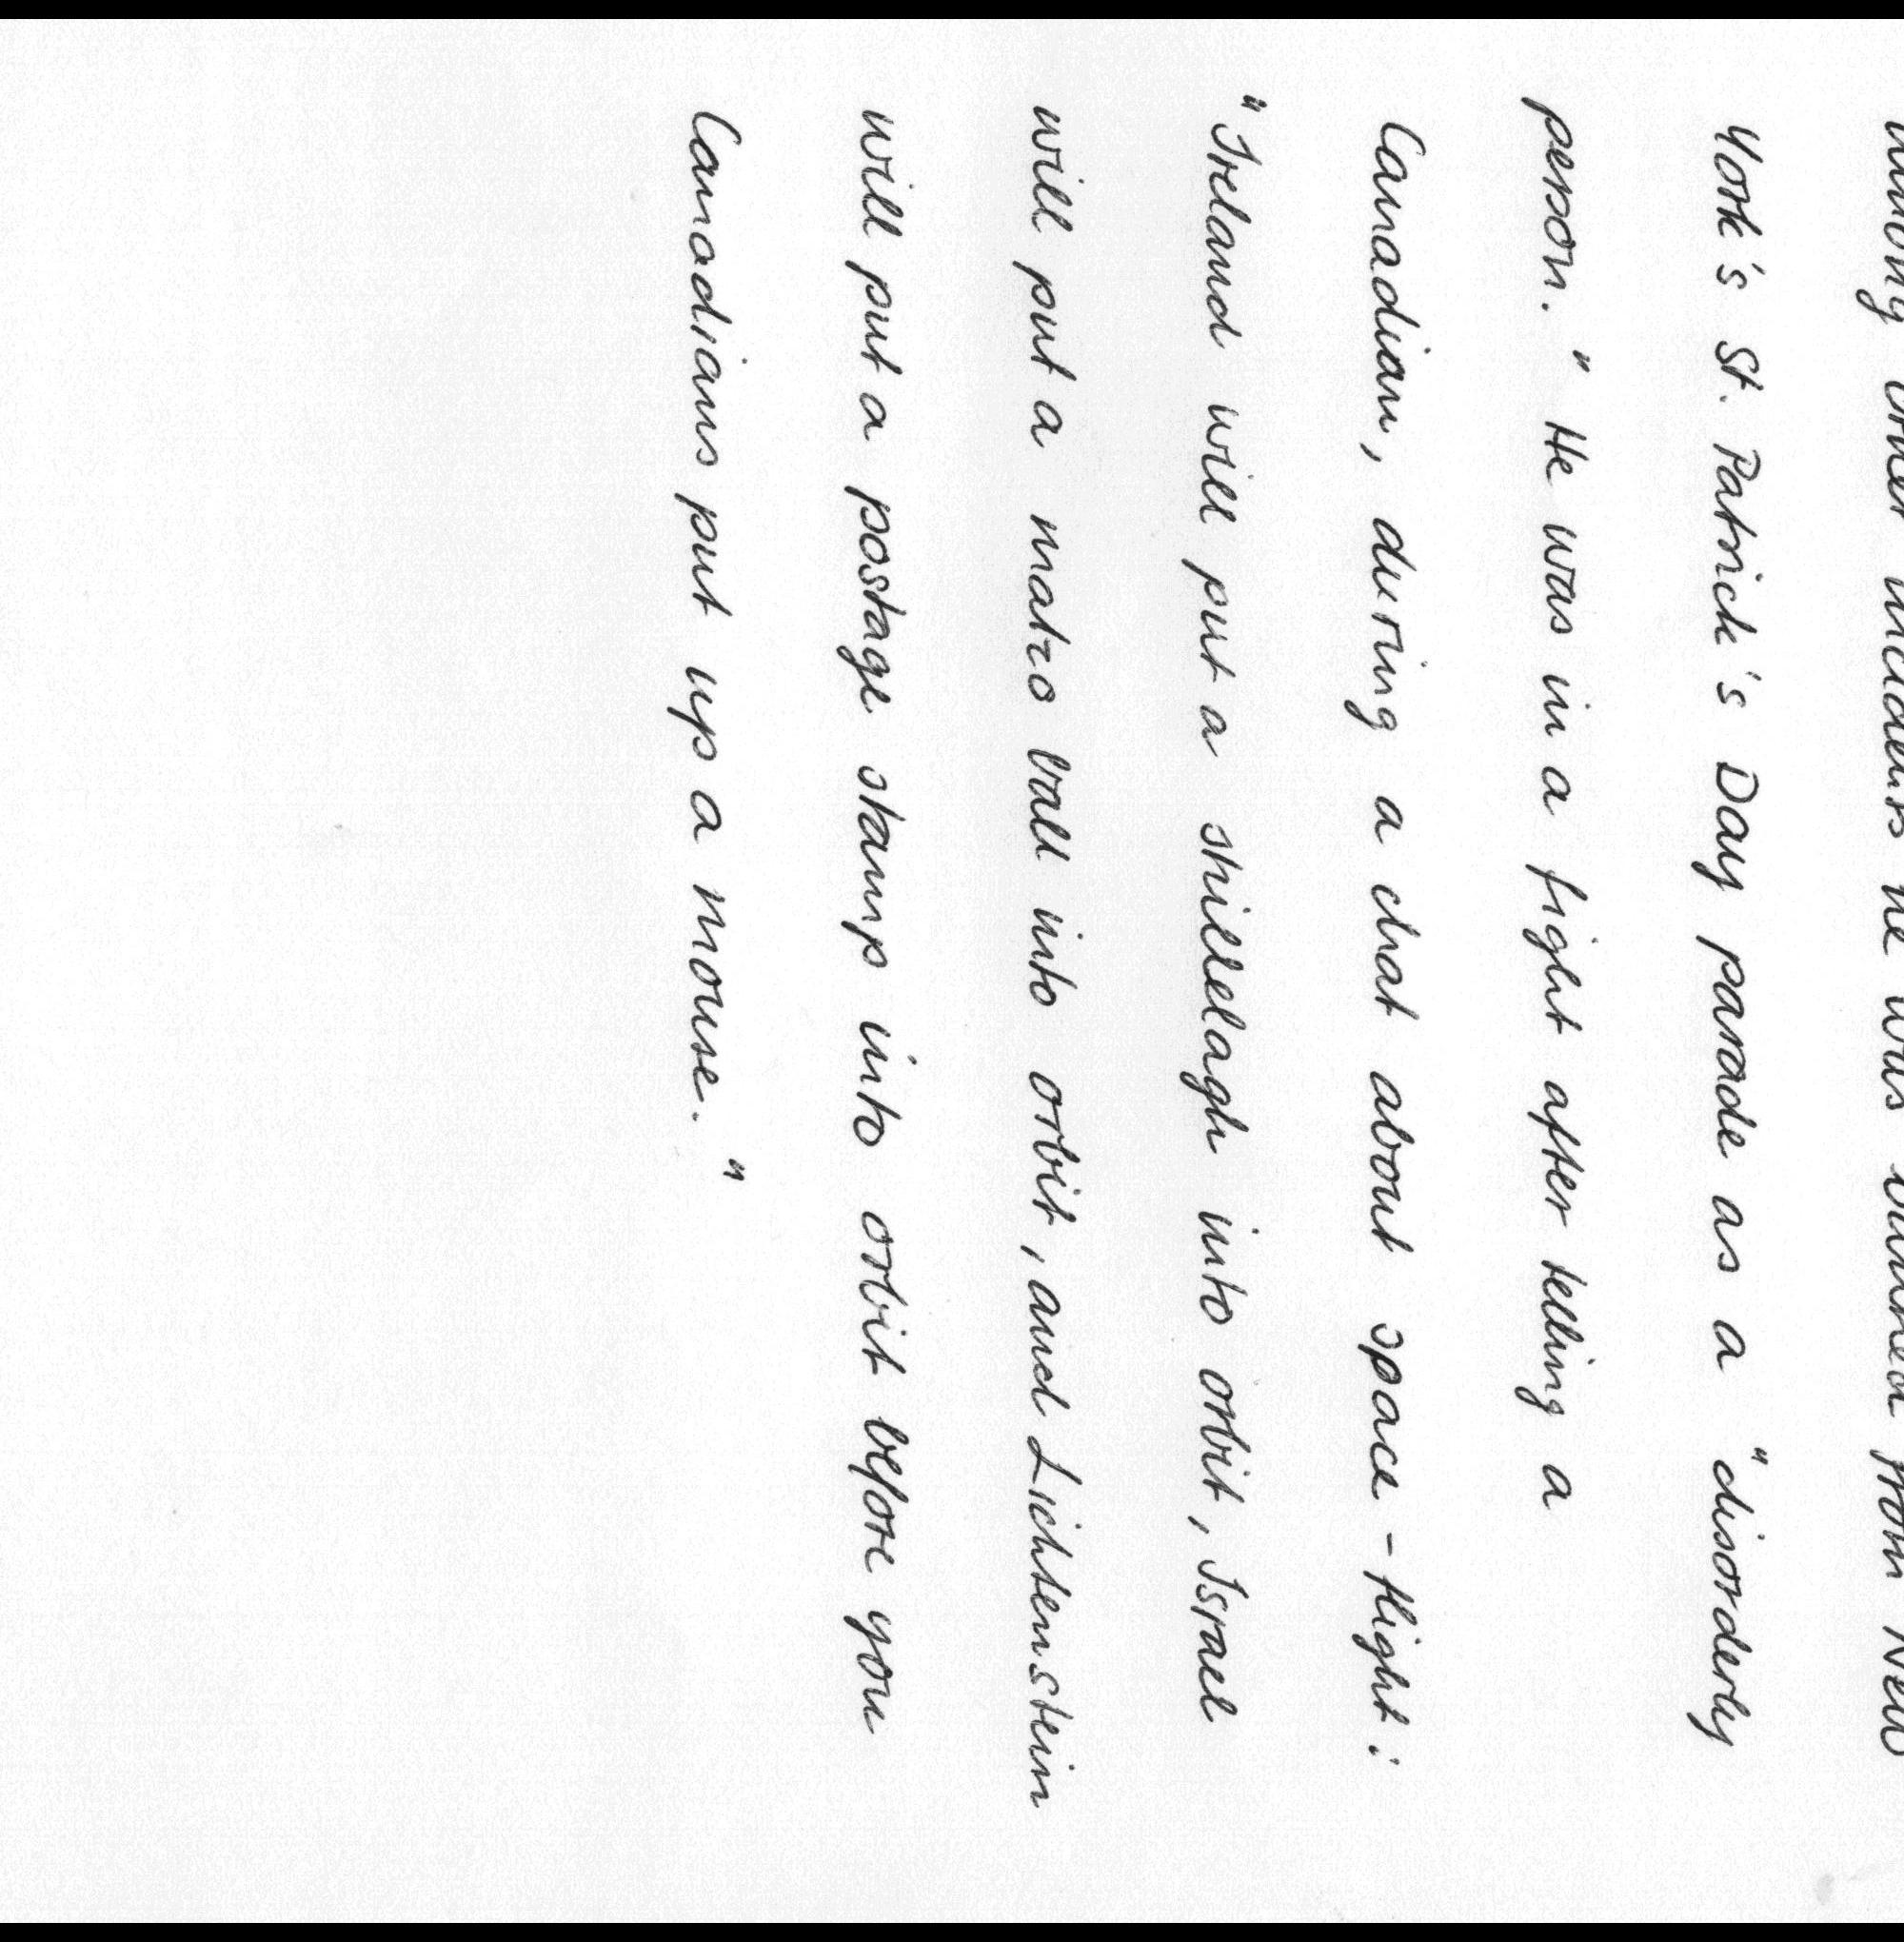 among other incidents he was banned from New
York's St. Patrick's Day parade as a "disorderly
person." He was in a fight after telling a
Canadian, during a chat about space-flight:
"Ireland will put a shillelagh into orbit, Israel
will put a matzo ball into orbit, and Lichtenstein
will put a postage stamp into orbit before you
Canadians put up a mouse."